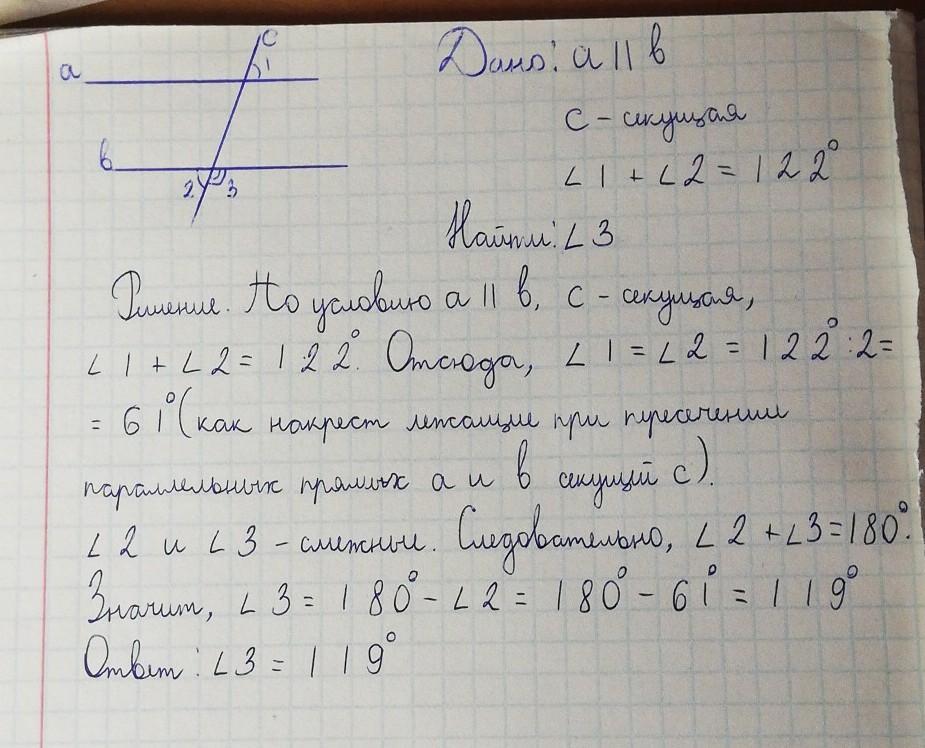 c
a
1
в
2 3
Дано: a || в
c - секущая
∠1 + ∠2 = 122°
Найти: ∠3
Решение. По условию a || в, c - секущая,
∠1 + ∠2 = 122°. Отсюда, ∠1 = ∠2 = 122° : 2 =
= 61° (как накрест лежащие при пересечении
параллельных прямых a и в секущей c).
∠2 и ∠3 - смежные. Следовательно, ∠2 + ∠3 = 180°.
Значит, ∠3 = 180° - ∠2 = 180° - 61° = 119°
Ответ: ∠3 = 119°